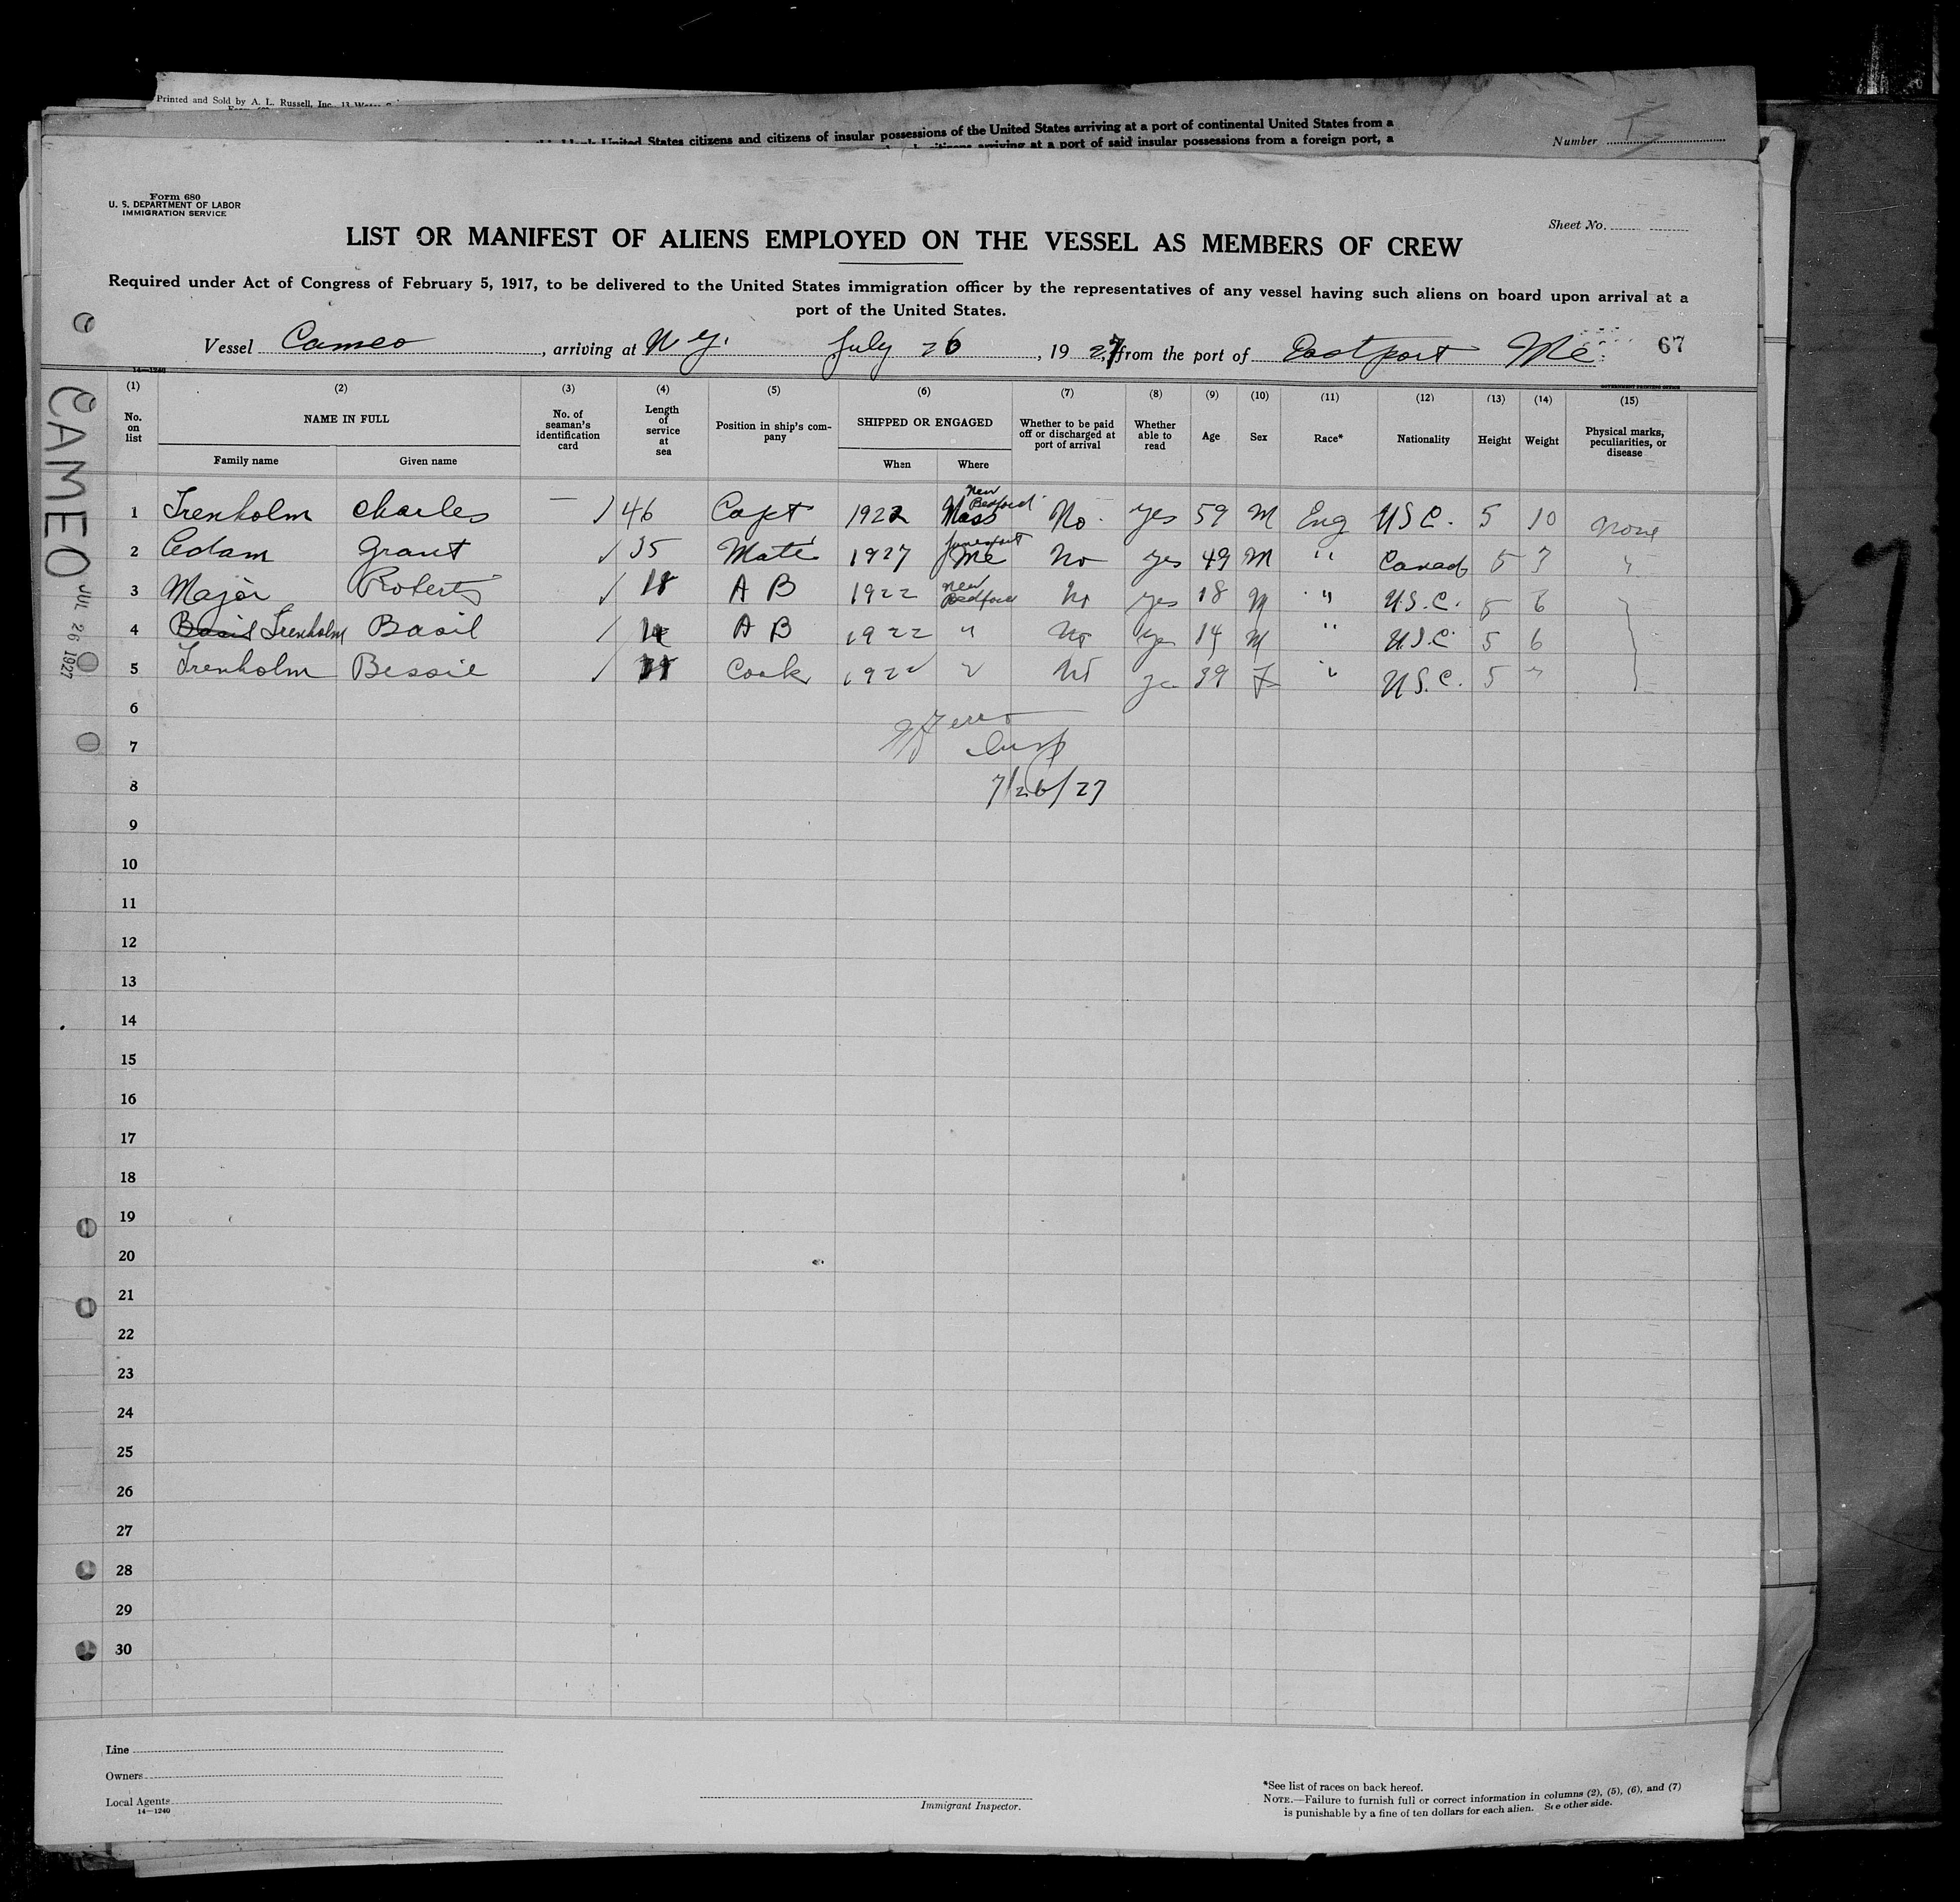 Printed and Sold by A. L. Russell, Inc.
United States citizens and citizens of insular possessions of the United States arriving at a port of continental United States from a
citizens arriving at a port of said insular possessions from a foreign port, a
Number
Form 680
U. S. DEPARTMENT OF LABOR
IMMIGRATION SERVICE
Sheet No.
LIST OR MANIFEST OF ALIENS EMPLOYED ON THE VESSEL AS MEMBERS OF CREW
Required under Act of Congress of February 5, 1917, to be delivered to the United States immigration officer by the representatives of any vessel having such aliens on board upon arrival at a
port of the United States.
Vessel Cameo, arriving at N Y. July 26, 1927, from the port of Eastport Me. 67
14—1240
GOVERNMENT PRINTING OFFICE
CAMEO JUL 26 1927
(1) (2) (3) (4) (5) (6) (7) (8) (9) (10) (11) (12) (13) (14) (15)
No. on list NAME IN FULL No. of seaman's identification card Length of service at sea Position in ship's company SHIPPED OR ENGAGED Whether to be paid off or discharged at port of arrival Whether able to read Age Sex Race* Nationality Height Weight Physical marks, peculiarities, or disease
Family name Given name When Where
1 Trenholm Charles — / 46 Capt 1922 New Bedford Mass No. yes 59 M Eng U S C. 5 10 none
2 Adam Grant / 35 Mate 1927 Jonesport Me No yes 49 M " Canad 5 7 "
3 Major Roberts / 18 A B 1922 New Bedford No yes 18 M " U.S.C. 5 6
4 Basil Trenholm Basil / A B 1922 " No yes 14 M " U.S.C 5 6
5 Trenholm Bessie / Cook 1922 " No yes 39 F " U.S.C. 5 7
6
7 Insp
8 7/26/27
9
10
11
12
13
14
15
16
17
18
19
20
21
22
23
24
25
26
27
28
29
30
Line
Owners
Local Agents
14—1240
Immigrant Inspector.
*See list of races on back hereof.
NOTE.—Failure to furnish full or correct information in columns (2), (5), (6), and (7)
is punishable by a fine of ten dollars for each alien. See other side.